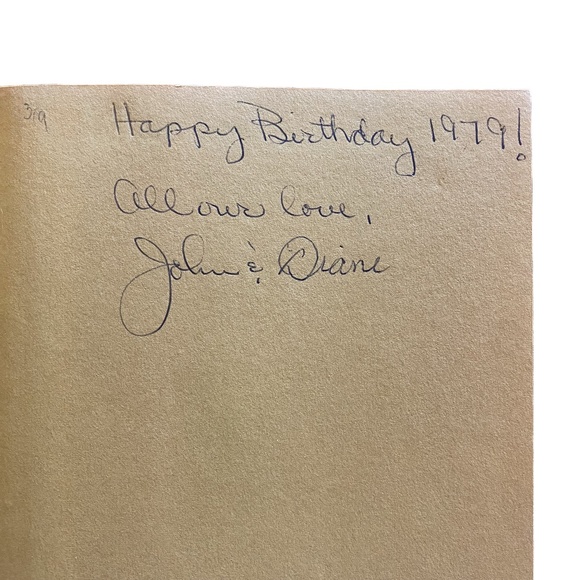 Happy Birthday 1979!
All our love,
John & Diane